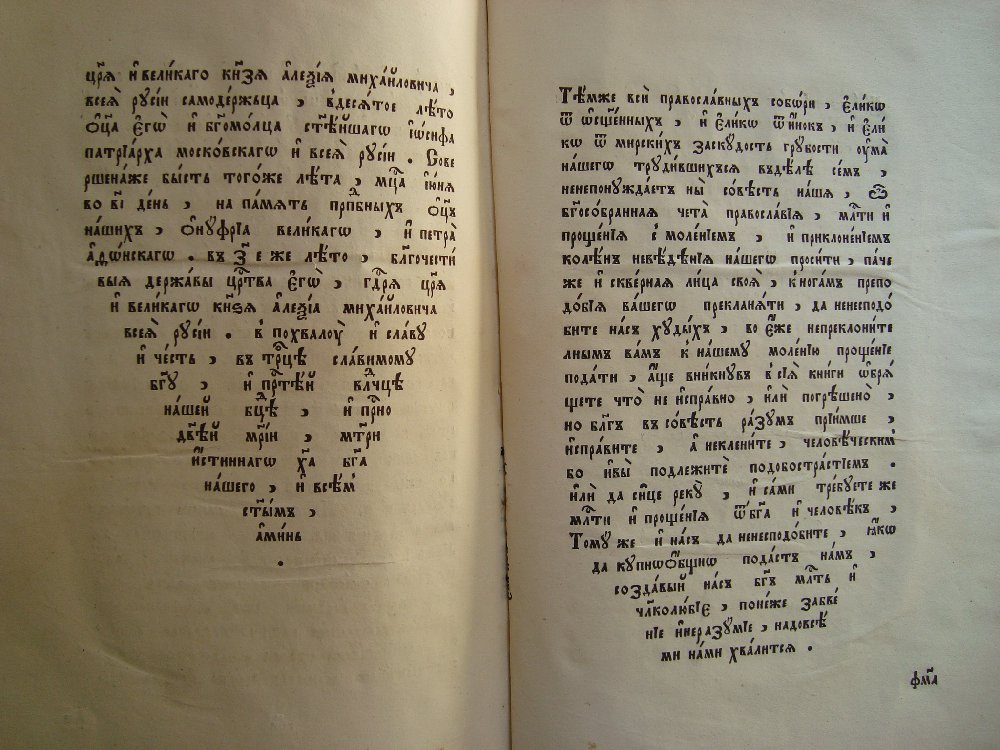 цр҃ѧ и҆ вели́каго кн҃ѕѧ а҆леѯі́ѧ миха́йловича ,
всеѧ̀ рꙋсі́и самоде́ржьца , вдесѧ́тое лѣ́то
ѻ҆ц҃а̀ є҆гѡ̀ и҆ бг҃омо́лца ст҃ѣ́йшагѡ і҆ѡ́сифа
патрїа́рха моско́вскагѡ и҆ всеѧ̀ рꙋсі́и . Сове
ршена́же бы́сть того́же лѣ́та , мц҃а і҆ю́нѧ
во в҃і де́нь , на па́мѧть прпⷣбныхъ ѻ҆ц҃ъ
на́шихъ , ѻ҆нꙋ́фрїа вели́кагѡ , и҆ петра̀
а҆ѳо́нскагѡ . въ з҃ е же лѣ́то , бл҃гочести́
выѧ держа́вы црⷭ҇тва є҆гѡ̀ , гдⷭ҇рѧ цр҃ѧ
и҆ вели́кагѡ кн҃ѕѧ а҆леѯі́ѧ миха́йловича
всеѧ̀ рꙋсі́и . в похвалꙋ̀ и҆ сла́вꙋ
и҆ че́сть , въ трⷪ҇цѣ сла́вимомꙋ
бг҃ꙋ , и҆ прⷭ҇тѣ́й влⷣчцѣ
на́шей бцⷣѣ , и҆ прⷭ҇но
дв҃ѣй мр҃і́и , мт҃ри
и҆́стиннагѡ хрⷭ҇та̀ бг҃а
на́шего , и҆ всѣ́мъ
ст҃ы́мъ ,
а҆ми́нь
.
Тѣ́мже всѝ правосла́вныхъ собо́ри , є҆ли́кѡ
ѿ ѡ҆сщ҃е́нныхъ , и҆ є҆ли́кѡ ѿ и҆́нокъ , и҆ є҆ли́
кѡ ѿ мирски́хъ заскꙋ́дость грꙋ́бости ᲂу҆ма̀
на́шегѡ трꙋди́вшихъсѧ въ дѣ́лѣ се́мъ ,
ненепонꙋжда́етъ ны̀ со́вѣсть на́ша , ѽ
бг҃осо́браннаѧ чета̀ правосла́вїѧ , млⷭ҇ти и҆
проще́нїѧ с моле́нїемъ , и҆ приклоне́нїемъ
колѣ́нъ невѣ́дѣнїѧ на́шего проси́ти , па́че
же и҆ скве́рнаѧ ли́ца своѧ̀ , к нога́мъ препо
до́бїѧ ва́шего преклонѧ́ти , да ненесподо́
бите на́съ хꙋды́хъ , во є҆́же непреклони́те
лнымъ ва́мъ к на́шемꙋ моле́нїю проще́нїе
пода́ти , а҆́ще вникнꙋ́въ в сїѧ̀ кни́ги ѡ҆брѧ́
щете что̀ не и҆спра́вно , и҆лѝ погрѣшено̀ ,
но бл҃гъ въ со́вѣсть ра́зꙋмъ прїи́мше ,
и҆спра́вите , а҆ неклени́те , человѣ́ческимъ
бо и҆ вы̀ подлежи́те подобостра́стїемъ .
И҆лѝ да си́це рекꙋ̀ , и҆ са́ми тре́бꙋете же
млⷭ҇ти и҆ проще́нїѧ ѿ бг҃а и҆ человѣ́къ ,
Томꙋ́же и҆ на́съ да ненесподо́бите , ꙗ҆́кѡ
да кꙋпнѡѻ́бщнѡ пода́стъ на́мъ ,
созда́вый на́съ бг҃ъ млⷭ҇ть и҆
чл҃колю́бїе , поне́же забве́
нїе и҆ неразꙋ́мїе , надовсѣ́
ми на́ми хва́литсѧ .
фм҃а